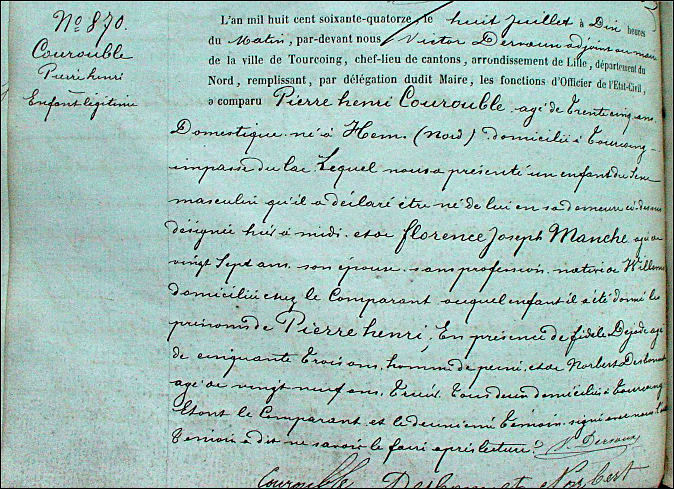 No 870.
Courouble
Pierre henri
Enfant légitime
L'an mil huit cent soixante-quatorze, le huit juillet à Dix heures
du Matin, par-devant nous Victor Dervaux adjoint au maire
de la ville de Tourcoing, chef-lieu de cantons, arrondissement de Lille, département du
Nord, remplissant, par délégation dudit Maire, les fonctions d'Officier de l'État-Civil,
a comparu Pierre henri Courouble agé de trente cinq ans
Domestique né à Hem (Nord) domicilié à Tourcoing
impasse du lac Lequel nous a présenté un enfant du Sexe
masculin qu'il a déclaré être né de lui en sa demeure ci-dessus
désignée hier à midi et de florence Joseph Manche agée de
vingt Sept ans son épouse sans profession native de Willems
domiciliée chez le Comparant auquel enfant il a été donné les
prénoms de Pierre henri, En présence de fidele agé
de cinquante trois ans, homme de peine et de Norbert
agé de vingt neuf ans, tous deux domiciliés à Tourcoing
Et ont le Comparant et le deuxième témoin signé avec nous
témoin a dit ne savoir le faire après lecture. V. Dervaux
Courouble Norbert